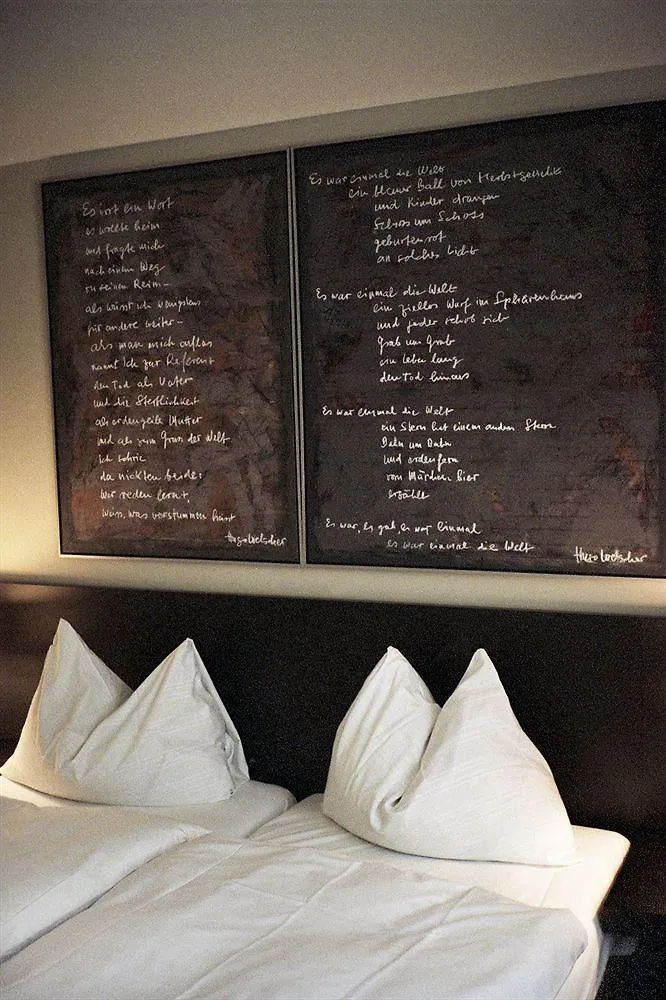 Es irrt ein Wort
es wollte heim
und fragte mich
nach einem Weg
zu seinen Reim –
als wüsst ich wenigstens
für andere weiter –
als man mich auflas
nannt ich zur Referenz
den Tod als Vater
und die Sterblichkeit
als erdengeile Mutter
und als zum Gruss der Welt
ich schrie
da nickten beide:
wer reden lernt,
weiss, was verstummen heisst
Hugo Loetscher
Es war einmal die Welt
ein blauer Ball von
und Kinder drangen
Schoss um Schoss
geburtenrot
an solches Licht
Es war einmal die Welt
ein zielloser Wurf im Sphärenhaus
und jeder schob sich
Grab um Grab
ein Leben lang
den Tod hinaus
Es war einmal die Welt
ein Stern hat einem andern Stern
Bahn um Bahn
und erdenfern
vom Märchen hier
erzählt
Es war, es gab, es war einmal
es war einmal die Welt
Hugo Loetscher